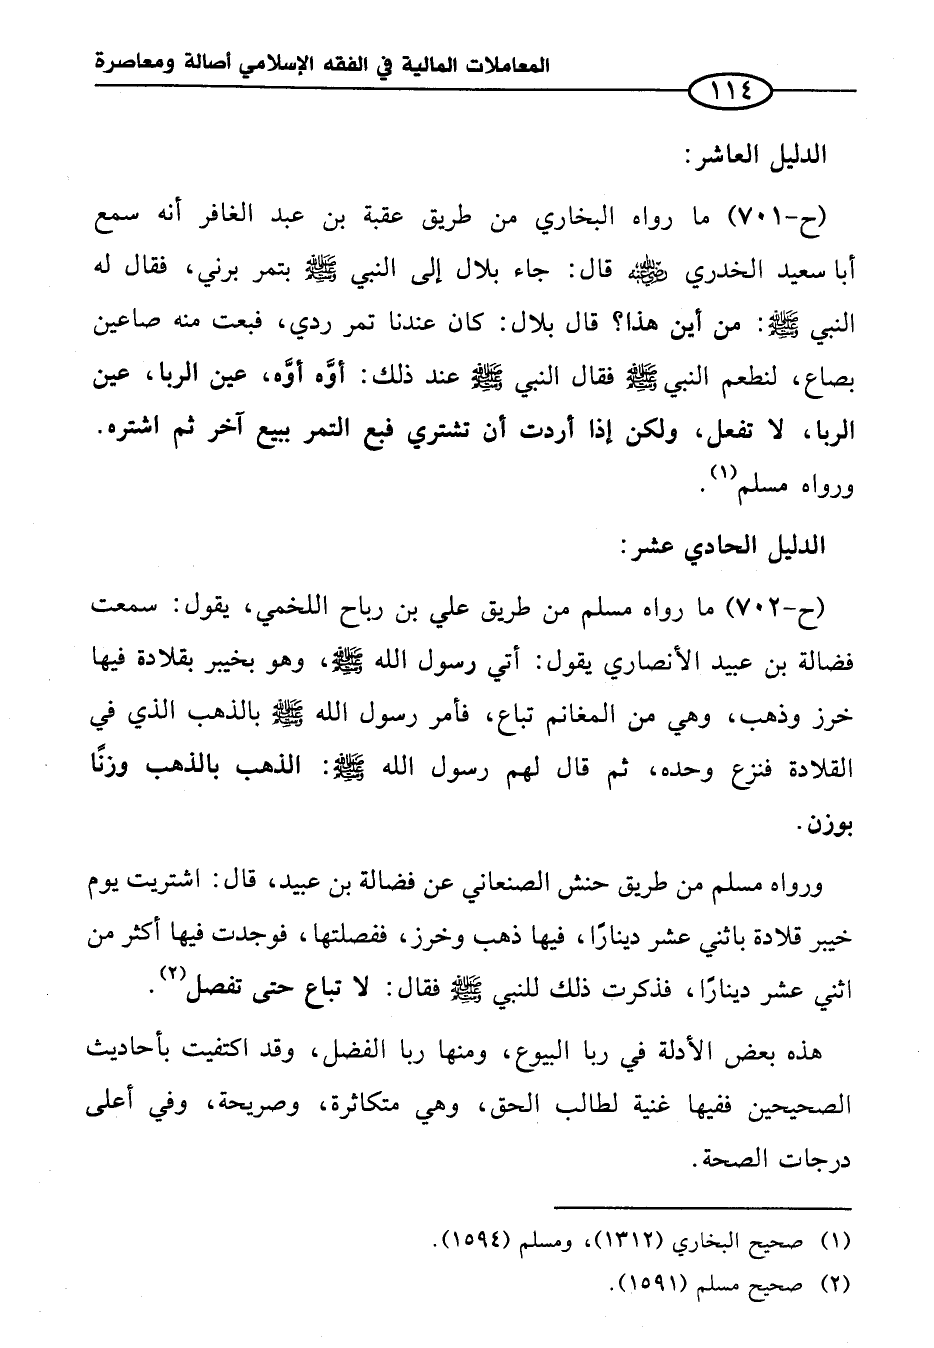 المعاملات المالية في الفقه الإسلامي أصالة ومعاصرة
١١٤
الدليل العاشر:
(ح-٧٠١) ما رواه البخاري من طريق عقبة بن عبد الغافر أنه سمع
أبا سعيد الخدري رضي الله عنه قال: جاء بلال إلى النبي ﷺ بتمر برني، فقال له
النبي ﷺ: من أين هذا؟ قال بلال: كان عندنا تمر ردي، فبعت منه صاعين
بصاع، لنطعم النبي ﷺ فقال النبي ﷺ عند ذلك: أوَّه أوَّه، عين الربا، عين
الربا، لا تفعل، ولكن إذا أردت أن تشتري فبع التمر ببيع آخر ثم اشتره.
ورواه مسلم(١).
الدليل الحادي عشر:
(ح-٧٠٢) ما رواه مسلم من طريق علي بن رباح اللخمي، يقول: سمعت
فضالة بن عبيد الأنصاري يقول: أتي رسول الله ﷺ، وهو بخيبر بقلادة فيها
خرز وذهب، وهي من المغانم تباع، فأمر رسول الله ﷺ بالذهب الذي في
القلادة فنزع وحده، ثم قال لهم رسول الله ﷺ: الذهب بالذهب وزنًا
بوزن.
ورواه مسلم من طريق حنش الصنعاني عن فضالة بن عبيد، قال: اشتريت يوم
خيبر قلادة باثني عشر دينارًا، فيها ذهب وخرز، ففصلتها، فوجدت فيها أكثر من
اثني عشر دينارًا، فذكرت ذلك للنبي ﷺ فقال: لا تباع حتى تفصل(٢).
هذه بعض الأدلة في ربا البيوع، ومنها ربا الفضل، وقد اكتفيت بأحاديث
الصحيحين ففيها غنية لطالب الحق، وهي متكاثرة، وصريحة، وفي أعلى
درجات الصحة.
(١) صحيح البخاري (١٣١٢)، ومسلم (١٥٩٤).
(٢) صحيح مسلم (١٥٩١).